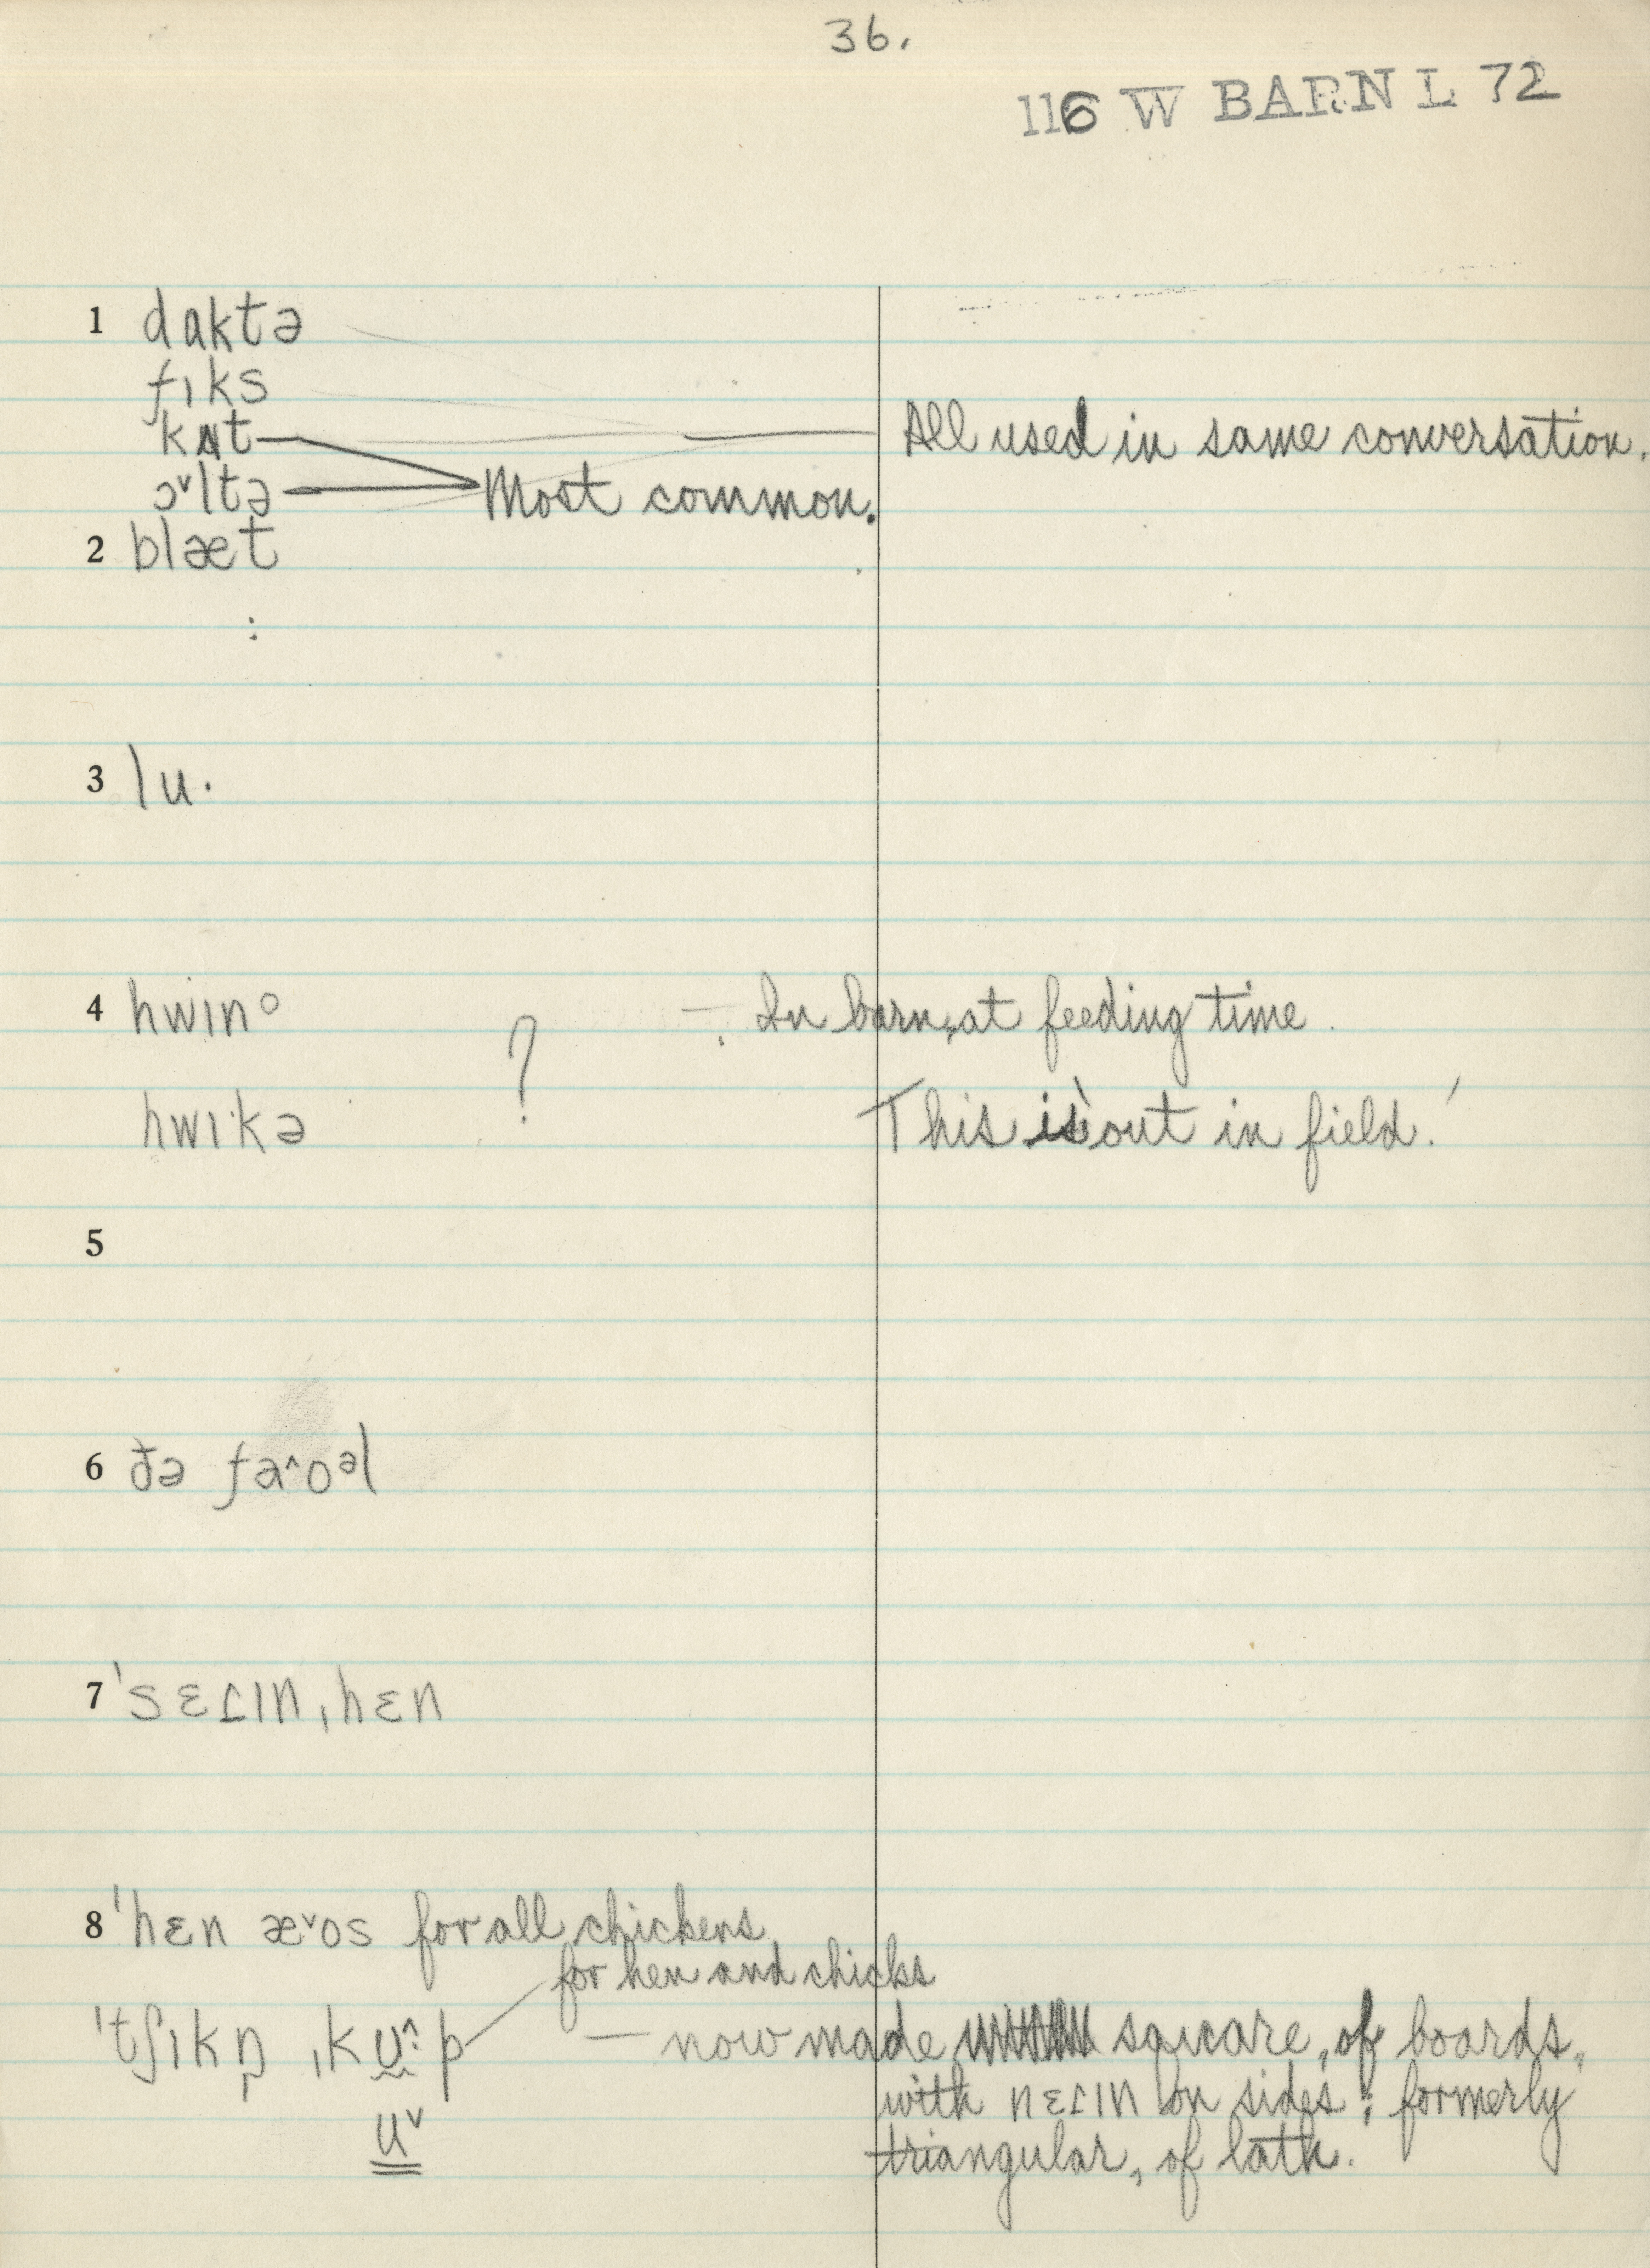 36.
116 W BARN L 72
1 dɑktə
fɪks
kʌt
All used in same conversation.
ɔ˅ltə Most common.
2 blæt
:
3 lu·
4 hwɪnᵒ ? – In barn, at feeding time.
hwɪkə This is 'out in field.'
5
6 ðə fa^oᵊl
7 'sɛɾɪn ˌhɛn
8 'hɛn æ˅os for all chickens
for hen and chicks
'tʃɪkŋ̩ ˌku^:p — now made square, of boards,
with nɛɾɪn on sides; formerly
u˅
triangular, of lath.